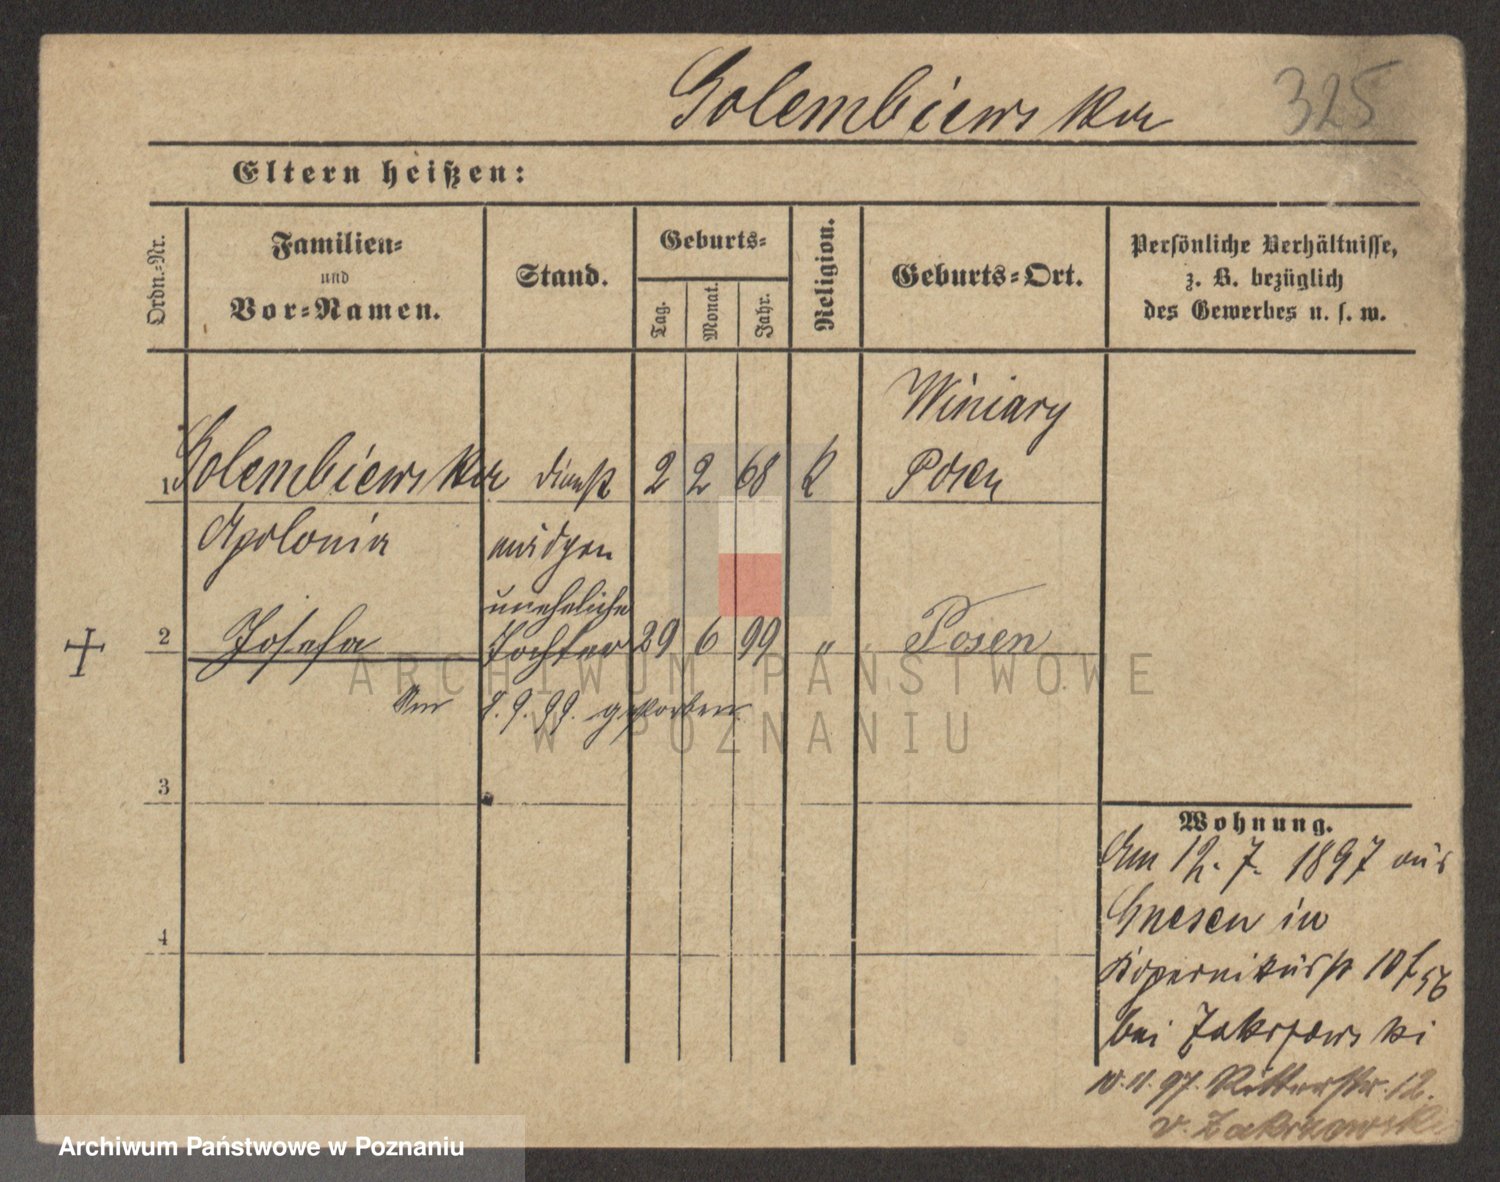 Golembiewska 325
Eltern heißen:
Ordn.=Nr.
Familien=
und
Vor=Namen.
Stand.
Geburts=
Tag.
Monat.
Jahr.
Religion.
Geburts=Ort.
Persönliche Verhältnisse,
z. B. bezüglich
des Gewerbes u. s. w.
Winiary
1 Golembiewska dienst 2 2 68 k Posen
Apolonia mädgen
uneheliche
2 Josefa Tochter 29 6 99 " Posen
Am 8. 9. 99. gestorben.
3
4
Wohnung.
Am 12. 7. 1897 aus
Gnesen in
Kopernikusstr 10
bei Zakrzewski
10.11.97. Ritterstr. 12.
v. Zakrzewski
ARCHIWUM PAŃSTWOWE
W POZNANIU
Archiwum Państwowe w Poznaniu